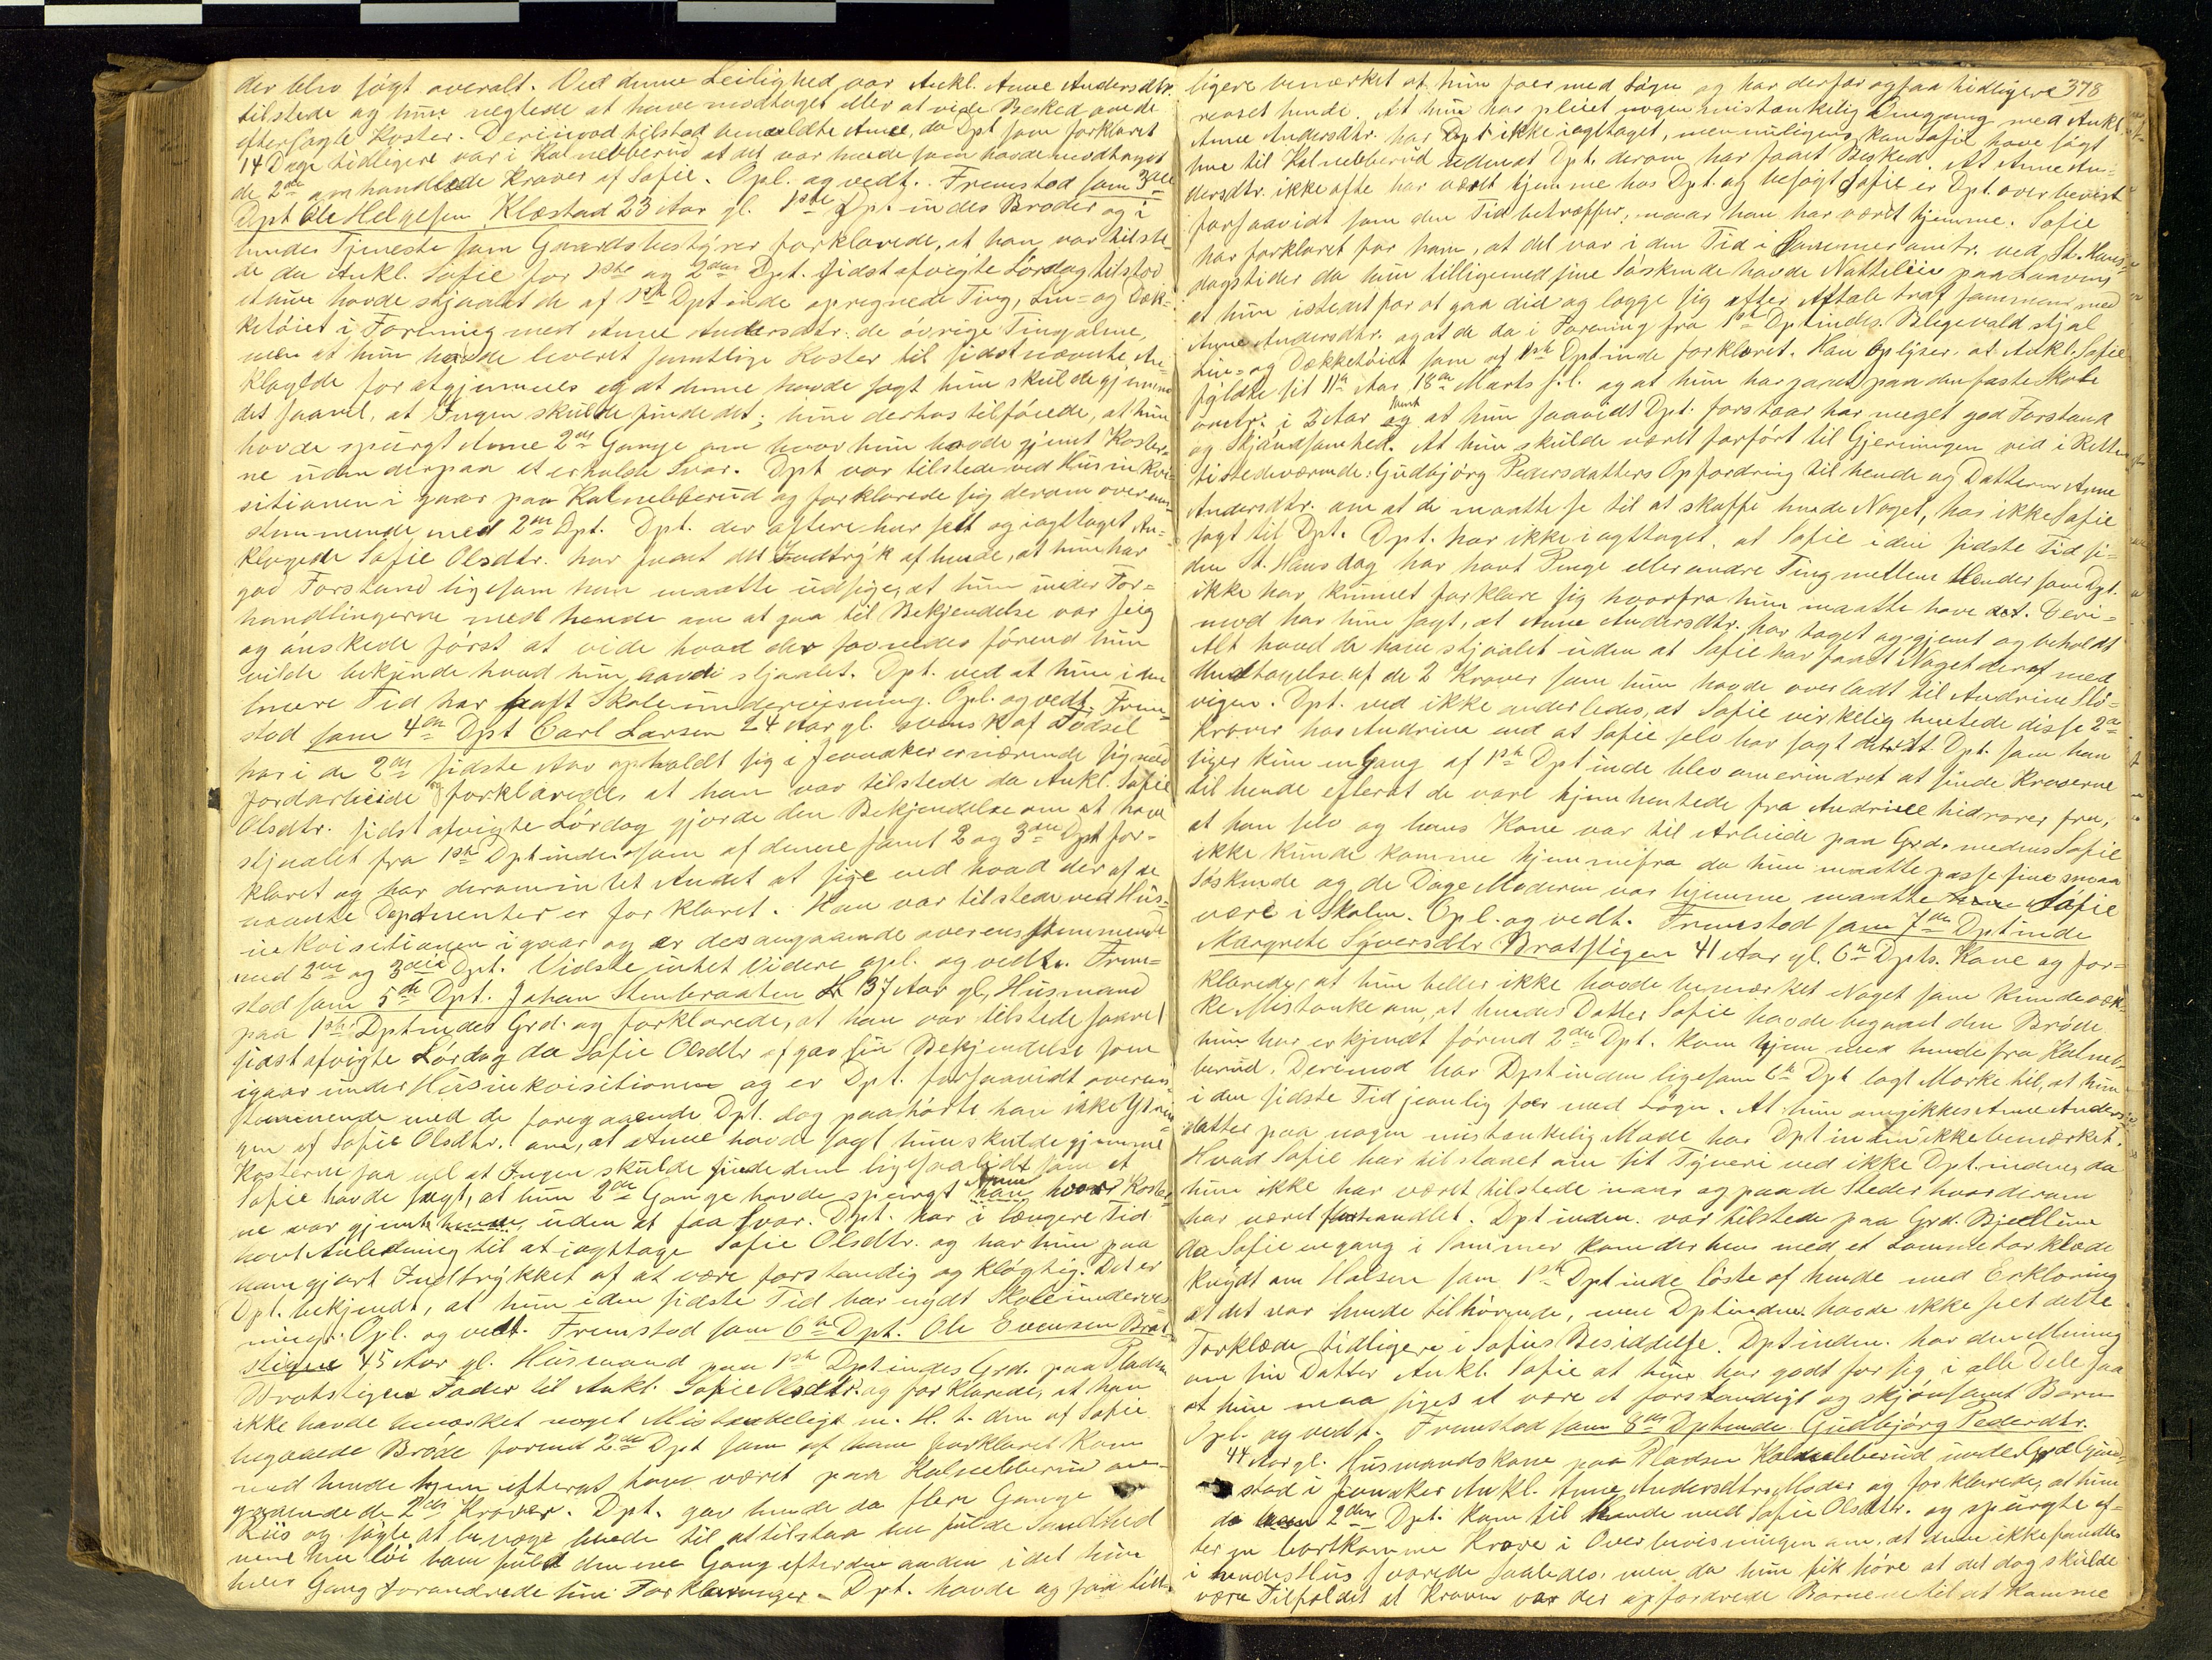 der blev søgt overalt. Ved denne Leilighed var Ankl. Anne Andersdtr.
tilstede og hun negtede at have modtaget eller at vide Besked om de
eftersøgte Koster. Derimod tilstod bemeldte Anne, da Dpt som forklaret
14 Dage tidligere var i Kalnebberud at det var hende som havde modtaget
de 2de omhandlede Kraver af Sofie. Opl. og vedt. Fremstod som 3die
Dpt Ole Helgesen Klæstad 23 Aar gl. 1ste Dptindes Broder og i
hendes Tjeneste som Gaardsbestyrer forklarede, at han var tilste
de da Ankl. Sofie for 1ste og 2den Dpt. sidstafvigte Lørdag tilstod
at have havde stjaalet de af 1ste Dptinde opregnede Ting, Lin- og Dæk-
ketøiet i Forening med Anne Andersdtr. de øvrige Ting alene,
men at hun havde leveret samtlige Koster til sidstnævnte An-
klagede for at gjemmes og at denne havde sagt hun skulde gjemme
det saavel, at Ingen skulde finde det; hun derhos tilføiede, at hun
havde spurgt Anne 2de Gange om hvor hun havde gjemt Koster-
ne uden derpaa at erholde Svar. Dpt var tilstede ved Husinkvi-
sitionen igaar paa Kalnebberud og forklarede sig derom overens-
stemmende med 2den Dpt. Dpt. der oftere har seet og iagttaget An-
klagede Sofie Olsdtr. har faaet det Indtryk af hende, at hun har
god Forstand ligesom han maatte udsige, at hun under For-
handlingerne med hende om at gaa til Bekjendelse var seig
og ønskede først at vide hvad der forelaa førend hun
vilde bekjende hvad hun havde stjaalet. Dpt. ved at hun i den
senere Tid har havt Skoleundervisning. Opl. og vedt. Frem-
stod som 4de Dpt Carl Larsen 24 Aar gl. svensk af Fødsel
har i de 2de sidste Aar opholdt sig i Jevnaker ernærende sig med
Jordarbeide og forklarede, at han var tilstede da Ankl. Sofie
Olsdtr. sidstafvigte Lørdag gjorde den Bekjendelse om at have
stjaalet fra 1ste Dptinde som af denne samt 2 og 3die Dpt for-
klaret og har derom intet Andet at sige end hvad der af de
nævnte Deponenter er forklaret. Han var tilstede ved Hus-
inkvisitionen igaar og er desangaaende overensstemmende
med 2den og 3die Dpt. Vidste intet Videre opl. og vedt. Frem-
stod som 5te Dpt. Johan Stenbraaten 37 Aar gl, Husmand
paa 1ste Dptindes Grd. og forklarede, at han var tilstede saavel
sidstafvigte Lørdag da Sofie Olsdtr afgav sin Bekjendelse som
igaar under Husinkvisitionen og er Dpt. forsaavidt overens-
stemmende med de foregaaende Dpt. dog paahørte han ikke Ytrin
gen af Sofie Olsdtr. om, at Anne havde sagt hun skulde gjemme
Kosterne saa vel at Ingen skulde finde dem ligesaalidt som at
Sofie havde sagt, at hun 2de Gange havde spurgt Anne hvor Koster
ne var gjemt uden at faa Svar. Dpt. har i længere Tid
havt Anledning til at iagttage Sofie Olsdtr. og har hun paa
ham gjort Indtrykket af at være forstandig og kløgtig. Det er
Dpt. bekjendt, at hun i den sidste Tid har nydt Skoleundervis-
ning. Opl. og vedt. Fremstod som 6te Dpt. Ole Evensen Brat-
stigen 45 Aar gl. Husmand paa 1ste Dptindes Grd. paa Pladsen
Bratstigen Fader til Ankl. Sofie Olsdtr. og forklarede, at han
ikke havde bemærket noget Mistænkeligt m. H. t. den af Sofie
begaaede Brøde førend 2den Dpt som af ham forklaret kom
med hende hjem efterat have været paa Kalnebberud an-
gaaende de 2de Kraver. Dpt. gav hende da flere Gange
Riis og søgte at bevæge hende til at tilstaa den fulde Sandhed
men hun løi ham fuld den ene Gang efter den anden idet hun
hver Gang forandrede sine Forklaringer – Dpt. havde ogsaa tid-
378
ligere bemærket at hun foer med Løgn og har derfor ogsaa tidligere
revset hende. At hun har pleiet nogen mistænkelig Omgang med Ankl.
Anne Andersdtr. har Dpt ikke iagttaget, men muligens kan Sofie have søgt
hen til Kalnebberud uden at Dpt. derom har faaet Besked. At Anne An-
dersdtr. ikke ofte har været hjemme hos Dpt. og besøgt Sofie er Dpt. overbevist
forsaavidt som den Tid betræffer, naar han har været hjemme. Sofie
har forklaret for ham, at det var i den Tid i Sommer omtr. ved St. Hans-
dagstider da hun tilligemed sine Søskende havde Natteleie paa Laaven
at hun istedetfor at gaa did og lægge sig efter Aftale traf sammen med
Anne Andersdtr. og at de da i Forening fra 1ste Dptindes. Blegevald stjal
Lin- og Dækketøiet som af 1ste Dptinde forklaret. Han oplyser at Ankl. Sofie
fyldte sit 11te Aar 18de Marts s.l. og at hun har gaaet paa den faste Skole
omtr. i 3 Aar samt at hun saavidt Dpt. forstaar har meget god Forstand
og Skjønsomhed. At hun skulde været forført til Gjerningen ved i Retten
tilstedeværende Gudbjørg Pedersdatters Opfordring til hende og Datteren Anne
Andersdtr. om at de maatte se til at skaffe hende Noget, har ikke Sofie
sagt til Dpt. Dpt. har ikke iagttaget, at Sofie i den sidste Tid si-
den St. Hansdag har havt Penge eller andre Ting mellem Hænder som Dpt.
ikke har kunnet forklare sig hvorfra hun maatte have det. Deri-
mod har hun sagt, at Anne Andersdtr. har taget og gjemt og beholdt
Alt hvad de have stjaalet uden at Sofie har faaet Noget deraf med
Undtagelse af de 2 Kraver som hun havde overladt til Andrine Stø-
vigen. Dpt. ved ikke anderledes, at Sofie virkelig hentede disse 2de
Kraver hos Andrine end at Sofie selv har sagt det. Dpt. som han
siger kun engang af 1ste Dptinde blev omerindret at sende Kraverne
til hende efterat de vare hjemhentede fra Andrine hidrører fra,
at han selv og hans Kone var til Arbeide paa Grd. medens Sofie
ikke kunde komme hjemmefra da hun maatte passe sine smaa
Søskende og de Dage Moderen var hjemme maatte Sofie
være i Skolen. Opl. og vedt. Fremstod som 7de Dptinde
Margrete Syversdtr Bratstigen 41 Aar gl. 6te Dpts. Kone og for-
klarede, at hun heller ikke havde bemærket Noget som kunde væk-
ke Mistanke om, at hendes Datter Sofie havde begaaet den Brøde
hun har erkjendt førend 2den Dpt. kom hjem med hende fra Kalneb-
berud. Derimod har Dptinden ligesom 6te Dpt lagt Mærke til, at hun
i den sidste Tid jevnlig foer med Løgn. At hun omgikkes Anne Anders-
datter paa nogen mistænkelig Maade har Dptinden ikke bemærket.
Hvad Sofie har tilstaaet om sit Tyveri ved ikke Dptinden, da
hun ikke har været tilstede naar og paa de Steder hvor derom
har været forhandlet. Dptinden. var tilstede paa Grd. Bjellum
da Sofie engang i Sommer kom derhen med et Lommetørklæde
knydt om Halsen som 1ste Dptinde løste af hende med Erklæring
at det var hende tilhørende, men Dptinden havde ikke seet dette
Tørklæde tidligere i Sofies Besiddelse. Dptinden. har den Mening
om sin Datter Ankl. Sofie at hun har godt for sig i alle Dele saa
at hun maa siges at være et forstandigt og skjønsomt Barn
Opl. og vedt. Fremstod som 8de Dptinde Gudbjørg Pedersdtr.
44 Aar gl. Husmandskone paa Pladsen Kalnebberud under Grd Gjuv-
stad i Jevnaker Ankl. Anne Andersdtrs Moder og forklarede, at hun
da 2den Dpt. kom til hende med Sofie Olsdtr. og spurgte ef-
ter en bortkommen Krave i Overbevisningen om, at denne ikke fandtes
i hendes Hus svarede saaledes, men da hun fik høre at det dog skulde
være Tilfældet at Kraven var der opfordrede Børnene til at komme